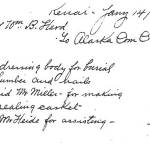 Kenai - Jany 14 1
Wm B. Herd
To Alaska Com
dressing body for burial
lumber and nails
id Mr Miller - for making
sealing casket
Mr Heide for assisting -